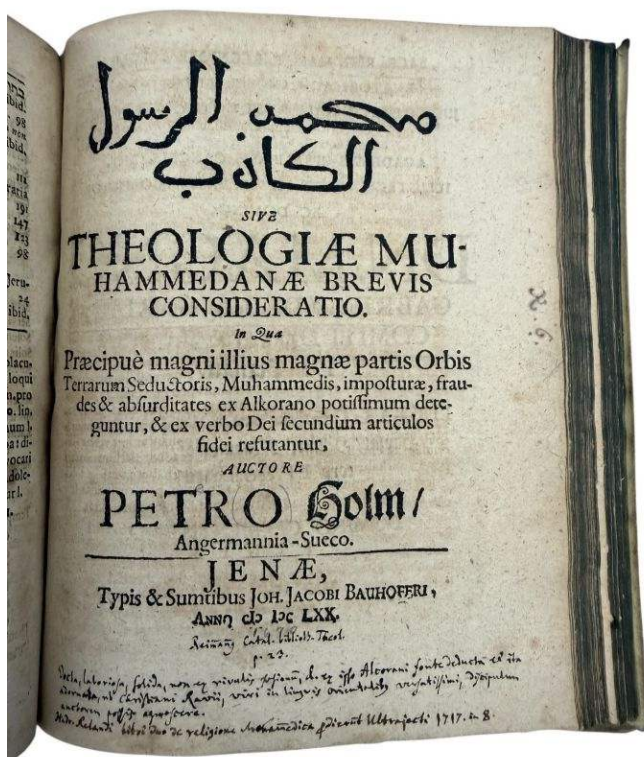 ibid.
98
non
ibid.
ratia
191
147
123
98
Jeru-
24
ibid.
loqui
vocari
محمد الرسول
الكاذب
SIVE
THEOLOGIÆ MU-
HAMMEDANÆ BREVIS
CONSIDERATIO.
In Qua
Præcipuè magni illius magnæ partis Orbis
Terrarum Seductoris, Muhammedis, imposturæ, frau-
des & absurditates ex Alkorano potissimum dete-
guntur, & ex verbo Dei secundum articulos
fidei refutantur,
AUCTORE
PETRO Holm/
Angermannia-Sueco.
JENÆ,
Typis & Sumtibus JOH. JACOBI BAUHOFERI,
ANNO cIɔ Iɔc LXX.
Catal. biblioth.
p. 23.
Docta, laboriosa, solida, non ex rivulis ex ipso Alcorani fonte deducta et ita
adornata, ut Christiani Ravii, viri in linguis orientalibus versatissimi, discipulum
auctorem possis agnoscere.
Hadr. Relandi libri duo de religione Mohammedica prodierunt Ultrajecti 1717. in 8.
X. 6.